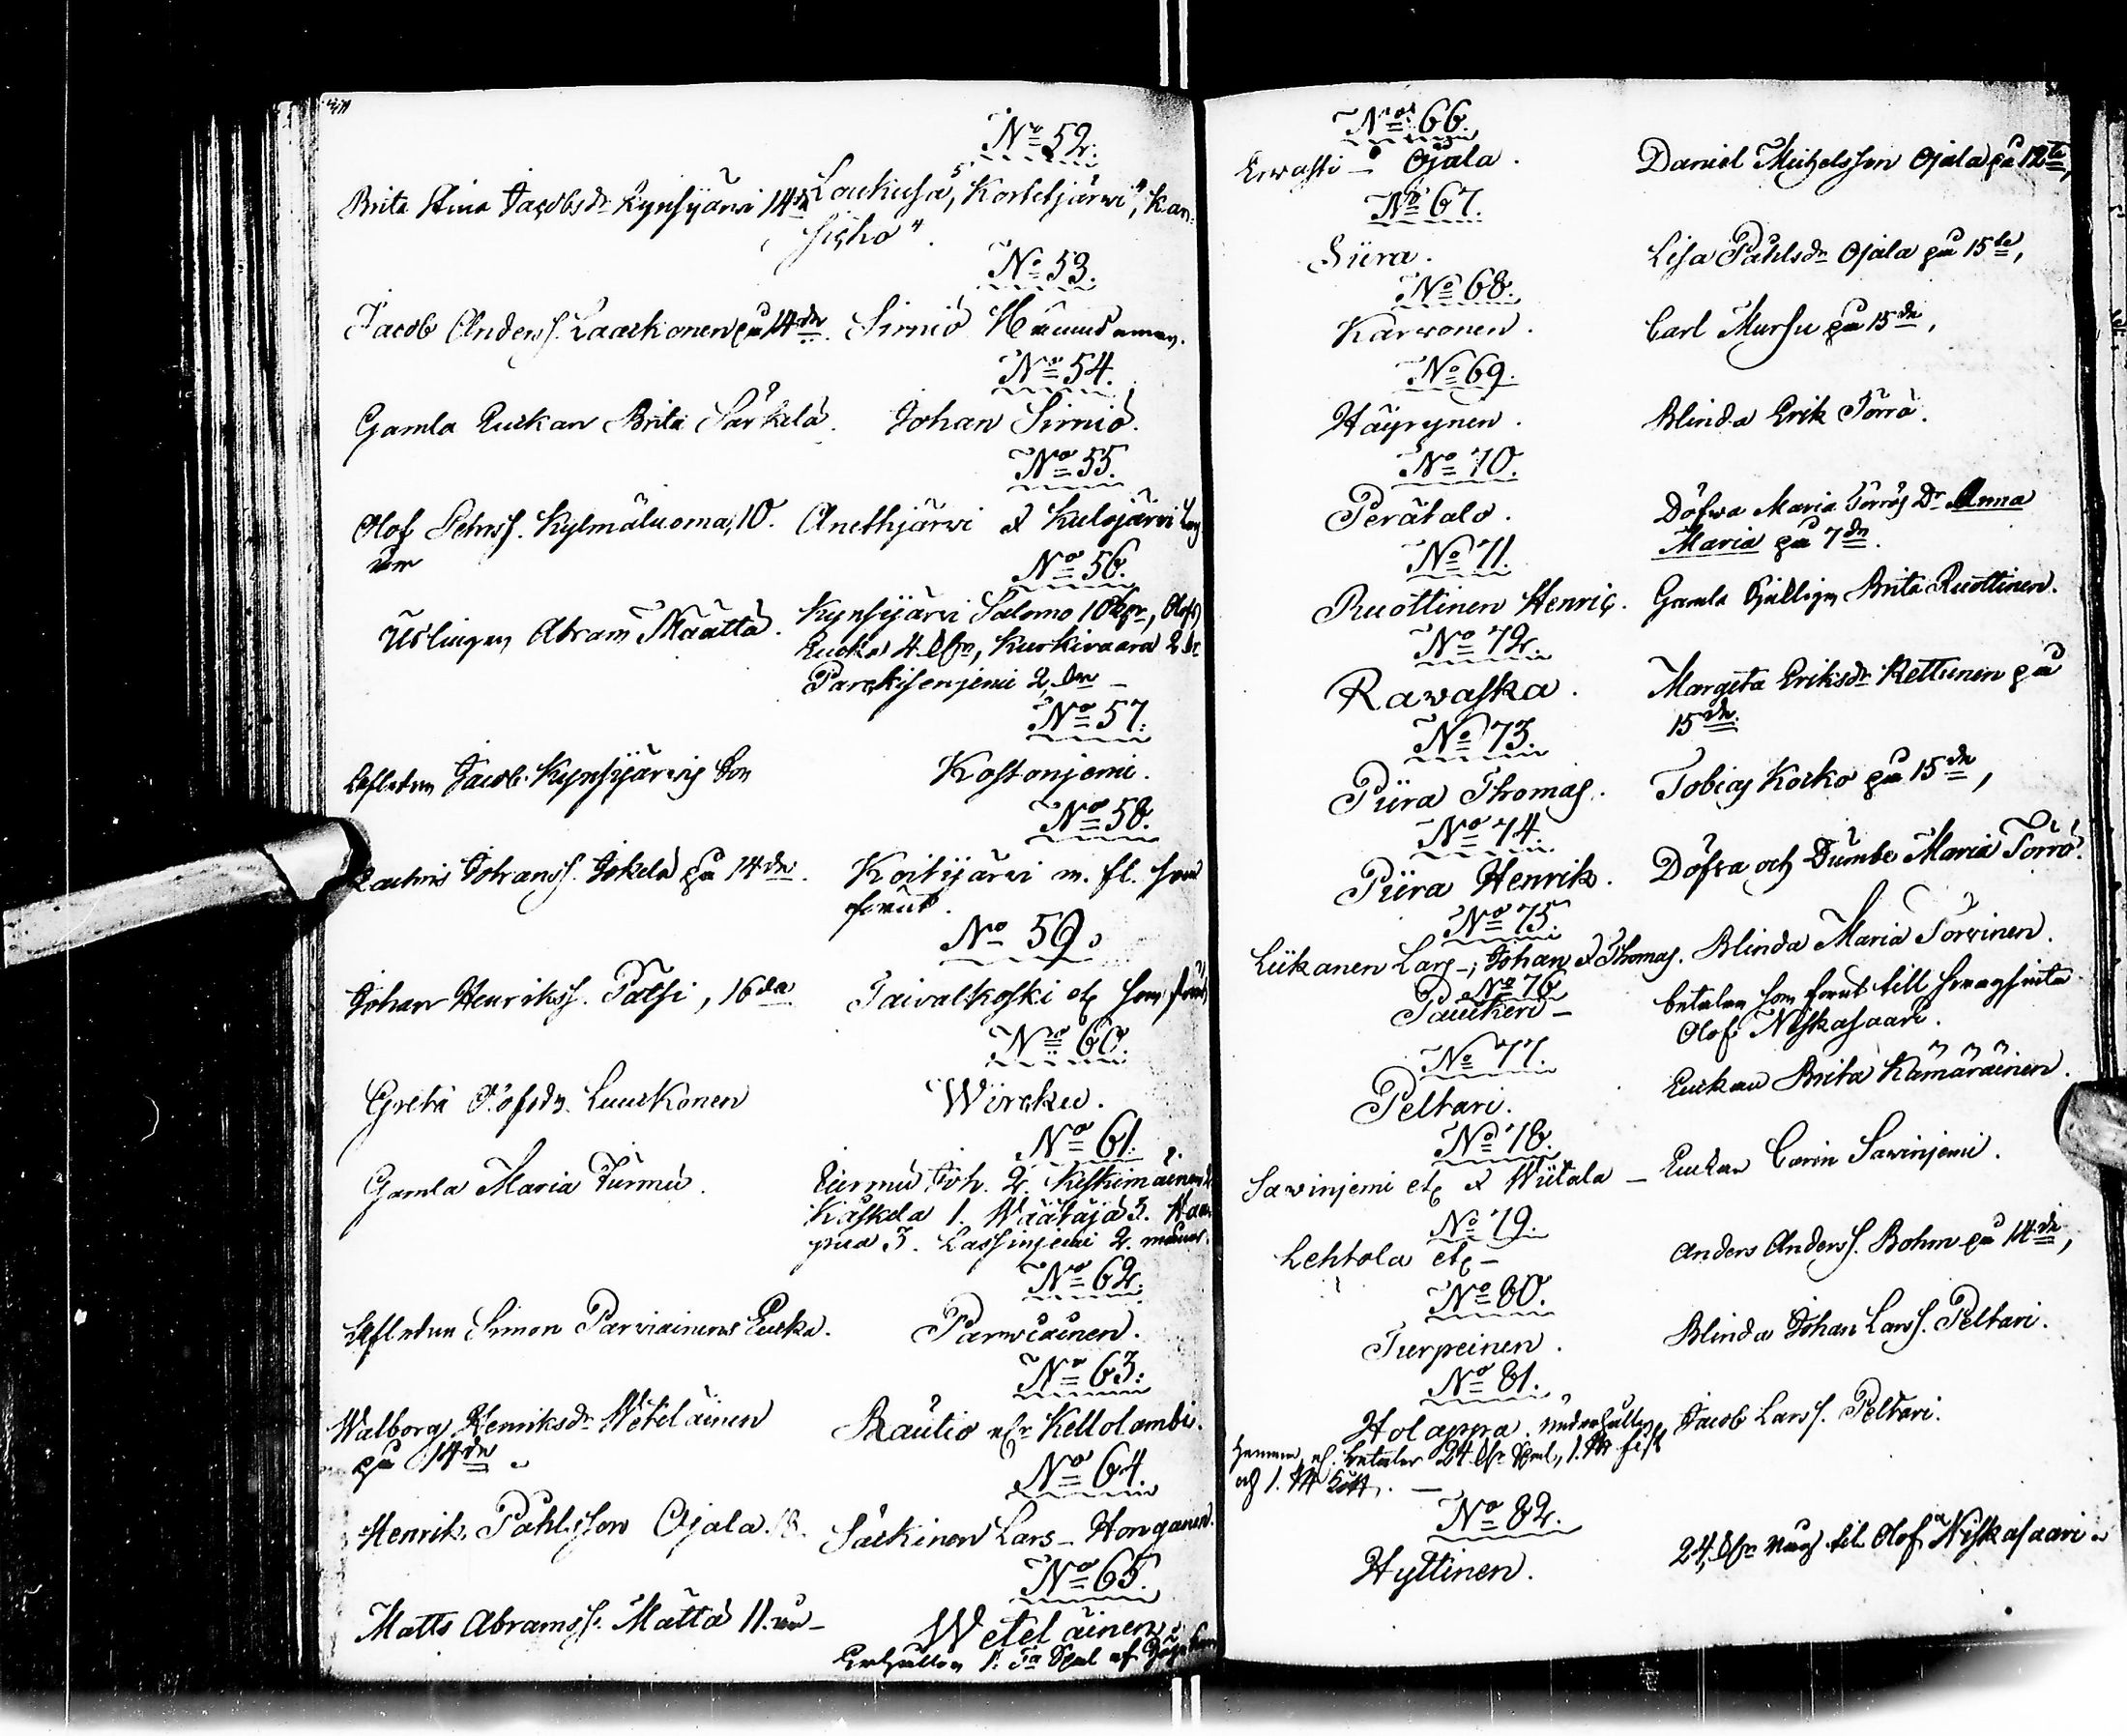 No 52.
Brita Stina Jacobsdr Kynsijärvi 14de Loukusa, Kortetjärvi, Kan-
sisho.
No 53.
Jacob Anderss. Laackonen på 14de. Sirniö
No 54.
Gamla Enckan Brita Särkelä. Johan Sirniö.
No 55.
Olof Pehrss. Kylmäluoma, 10. Anethjärvi & Kulojärvi
No 56.
Abram Määttä. Kynsijärvi Salomo 10 kpr, Olofs
Encka 4 kpr, Kurkivaara 2 dr
2 dr
No 57.
Jacob Kynsijärvis son Kostonjemi.
No 58.
Johanss. Jokela på 14de. Koitijärvi m. fl. som
förut.
No 59.
Johan Henrikss. Pätsi, 16de Taivalkoski etc som förut
No 60.
Greta Olofsdr. Luukkonen Wircku.
No 61.
Gamla Maria Turmu. Turmu Joh. 2. Keskimäinen
Käskela 1. Wäätäjä 3.
3. Lassinjemi 2.
No 62.
Simon Parviainens Encka. Parwiainen.
No 63.
Walborg Henriksdr Weteläinen Rautio Kellolambi.
på 14de
No 64.
Henrik Påhlsson Ojala. 18. Säckinen Lars - Honganen.
No 65.
Matts Abramss. Mättä 11. Weteläinen
af
No 66.
Erwasti - Ojala. Daniel Michelsson Ojala på 12te,
No 67.
Siira. Lisa Påhlsdr Ojala på 15te,
No 68.
Karvonen. Carl Mursu på 15de,
No 69.
Häyrynen. Blinda Erik Törrö.
No 70.
Perätalo. Döfwa Maria Törrös Dr Anna
Maria på 7de.
No 71.
Ruottinen Henric. Gamla Brita Ruottinen.
No 72.
Rawaska. Margeta Eriksdr Kettunen på
15de.
No 73.
Piira Thomas. Tobias Korko på 15de,
No 74.
Piira Henrik. Döfva och Dumbe Maria Törrö.
No 75.
Liikanen Lars -, Johan & Thomas. Blinda Maria Torvinen.
No 76
Pauckeri - betalas som förut till
Olof Niskasaari.
No 77.
Peltari. Enckan Brita Kämäräinen.
No 78.
Savinjemi etc & Wiitala - Enckan Carin Savinjemi.
No 79.
Lehtola etc - Anders Anderss. Bohm på 14de,
No 80.
Turpeinen. Blinda Johan Larss. Peltari.
No 81.
Holappa. underhåller Jacob Larss. Peltari.
betalar 24 kpr Spml, 1. fisk
och 1. kött. -
No 82.
Hyttinen. 24 kpr till Olof Niskasaari